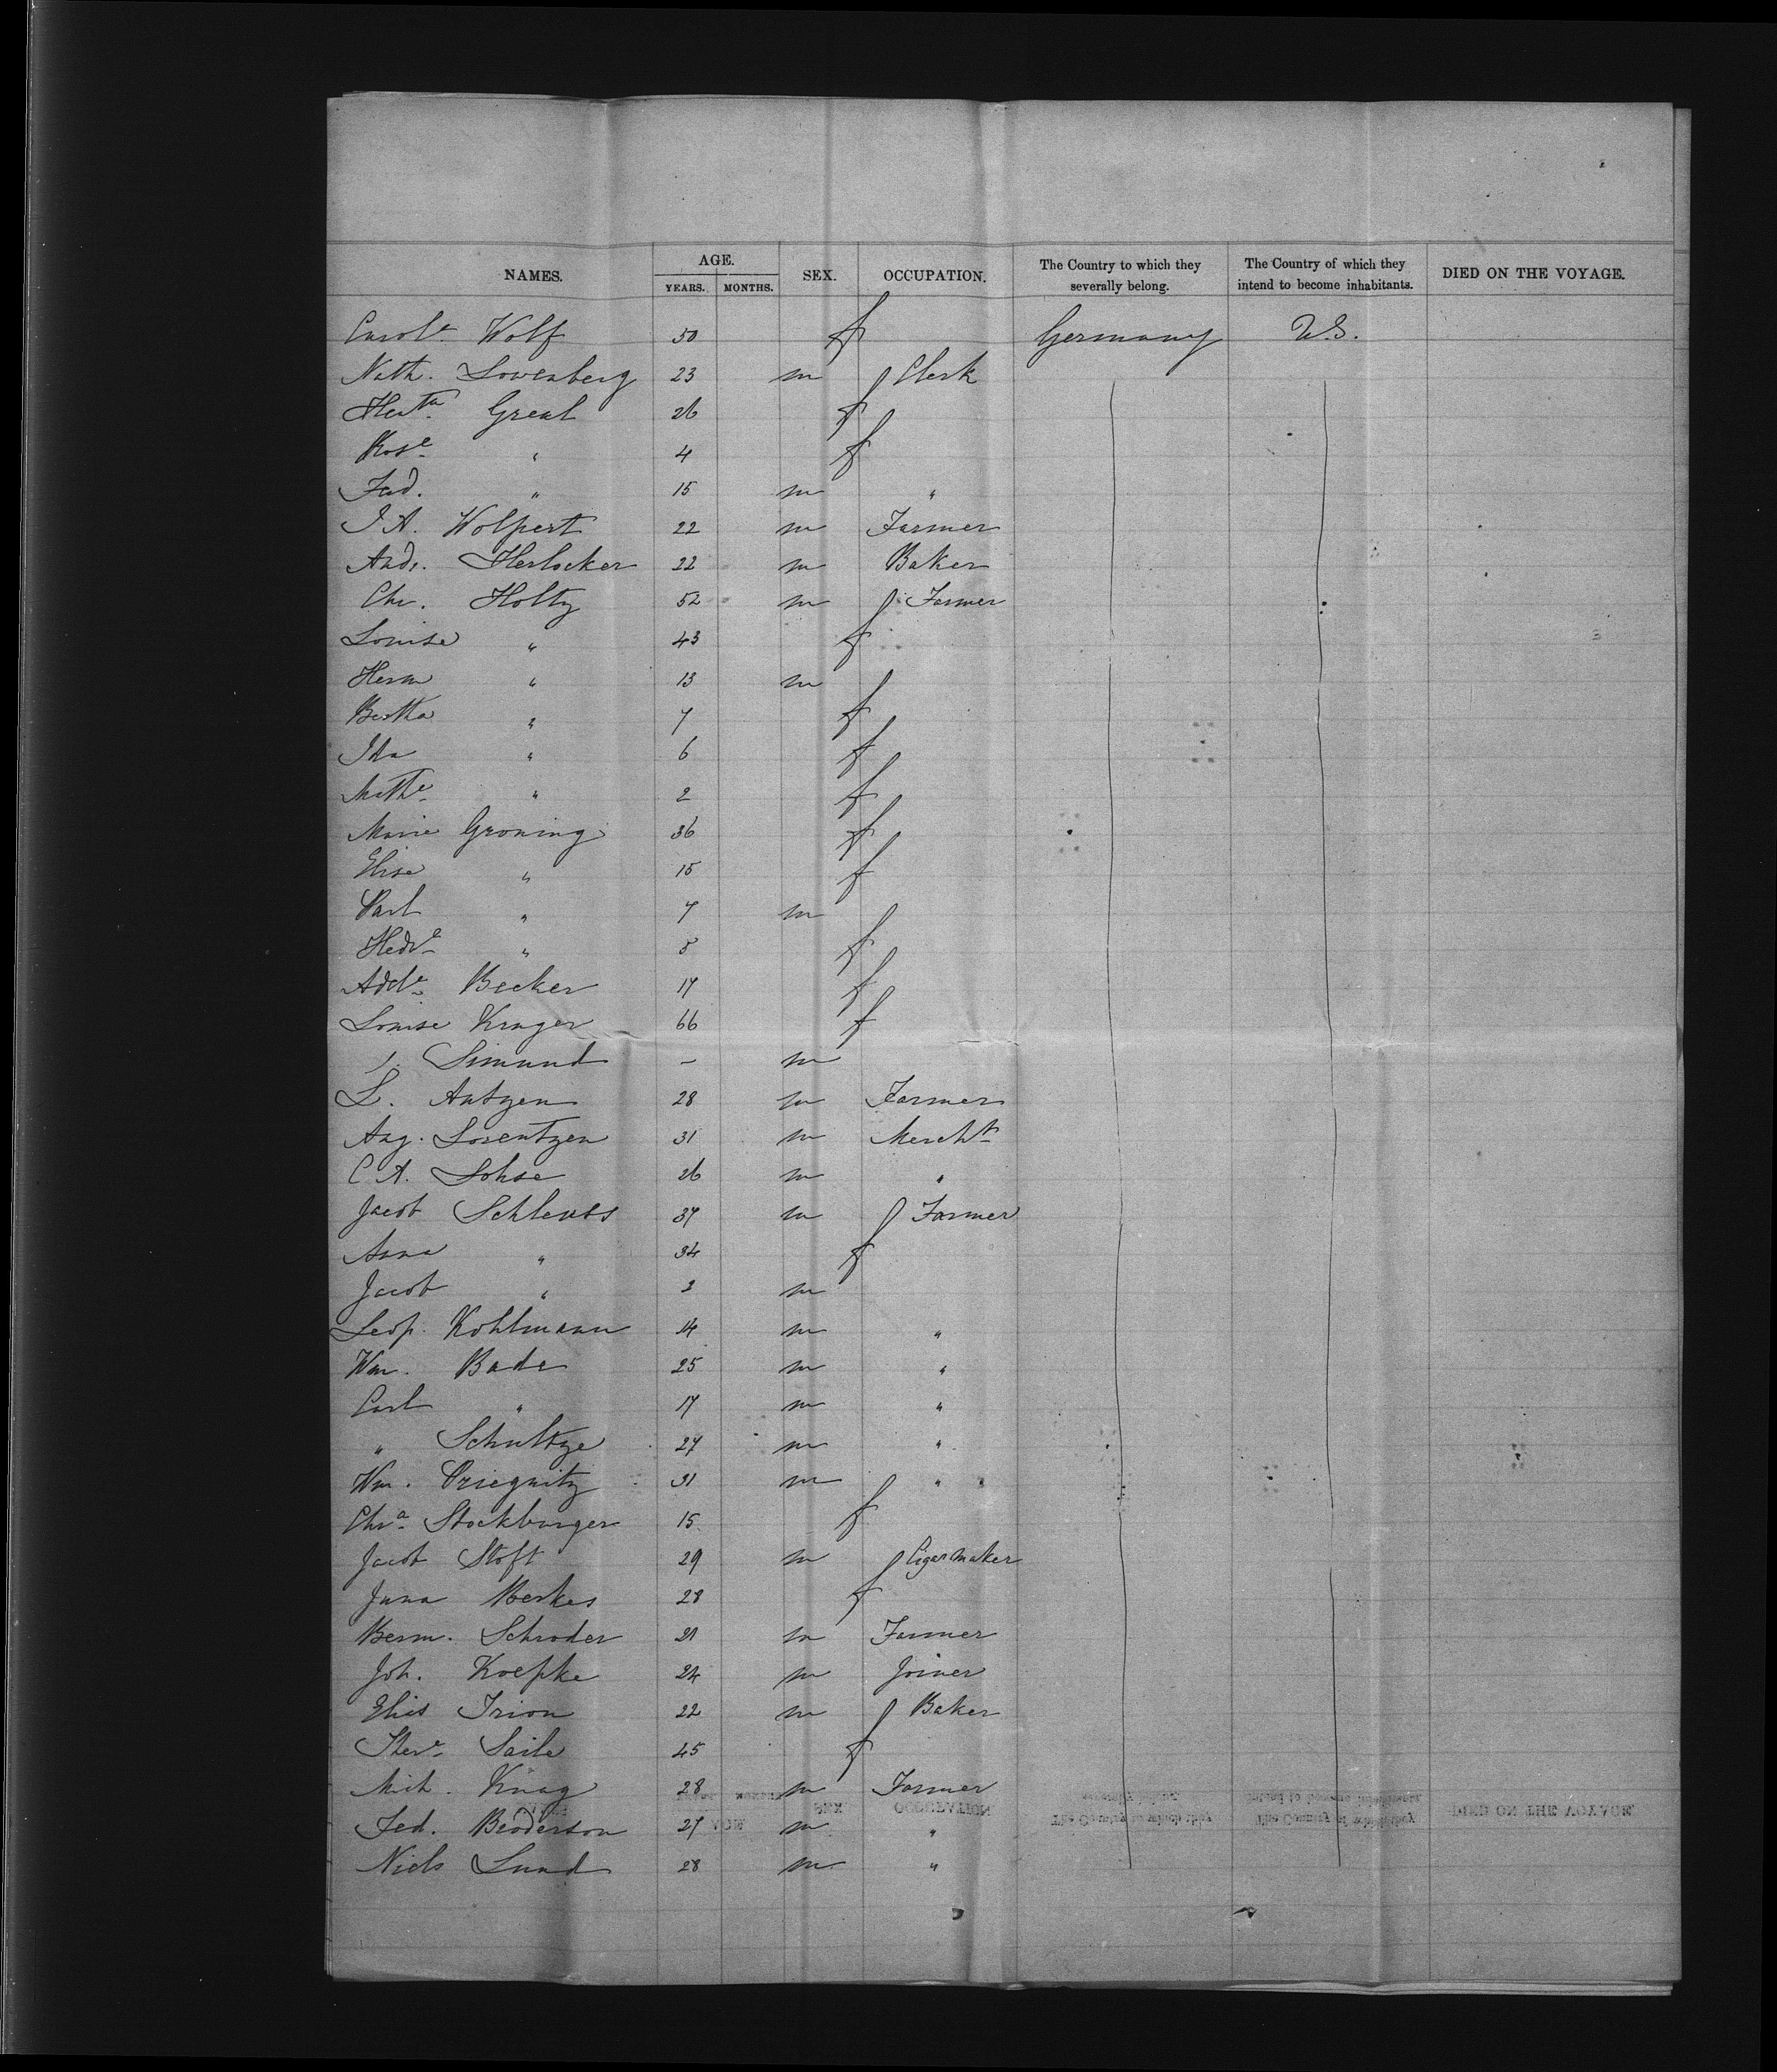 NAMES. AGE. YEARS. MONTHS. SEX. OCCUPATION. The Country to which they severally belong. The Country of which they intend to become inhabitants. DIED ON THE VOYAGE.
Carole Wolf 50 f Germany U.S.
Nath. Lowenberg 23 m Clerk
Herta Greal 26 f
Rose " 4 f
Fad. " 15 m "
J A. Wolpert 22 m Farmer
Andr. Herlocker 22 m Baker
Chr. Holtz 52 m Farmer
Louise " 43 f
Herm " 13 m
Bertha " 7 f
Ida " 6 f
Mathe " 2 f
Marie Groning 36 f
Elise " 15 f
Carl " 7 m
Hedve " 5 f
Adele Becker 17 f
Louise Kruger 66 f
Simund — m
L. Antzen 28 m Farmer
Aug. Lorentzen 31 m Mercht
C A. Lohse 26 m "
Jacob Schleuss 37 m Farmer
Anna " 34 f
Jacob " 3 m
Leop. Kohlmann 14 m "
Wm. Bade 25 m "
Carl " 17 m "
" Schultze 27 m "
Wm. Priegnitz 31 m "
Chra Stockburger 15 f
Jacob Stoft 29 m Cigarmaker
Jana Merkes 28 f
Berm. Schroder 21 m Farmer
Joh. Koepke 24 m Joiner
Elis Irion 22 m Baker
There Saile 45 f
Mich. Knag 28 m Farmer
Fed. Brodersen 27 m "
Niels Lund 28 m "